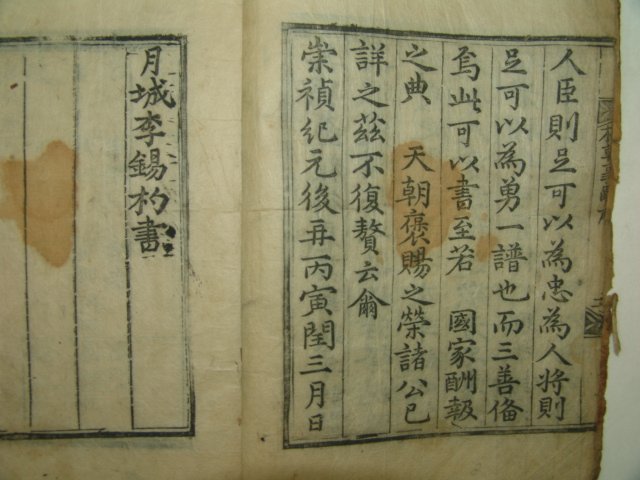 人臣則足可以為忠為人將則
足可以為勇一譜也而三善俻
焉此可以書至若　國家酬報
之典　天朝褒賜之榮諸公已
詳之茲不復贅云爾
崇禎紀元後再丙寅閏三月日
月城李錫杓書